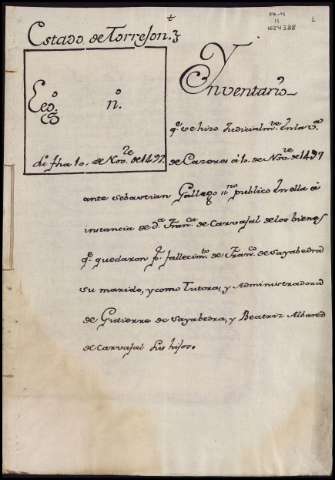 Estado de Torrejon. 3
Ynventario
Leg.o n.o
q.e se hizo Judicialm.te En la v.a
de fha 10. de Nov.re de 1497. de Cazeres á 10. de Nov.re de 1497
ante Sebastian Gallego ss.no publico En ella á
instancia de D.a Fran.ca de Carvajal de los bienes
q.e quedaron p.r fallecim.to de Fran.co de Sayabedra
su marido, y como Tutora, y Administradora
de Gutierre de Sayabedra, y Beatriz Albarez
de Carvajal sus hijos.